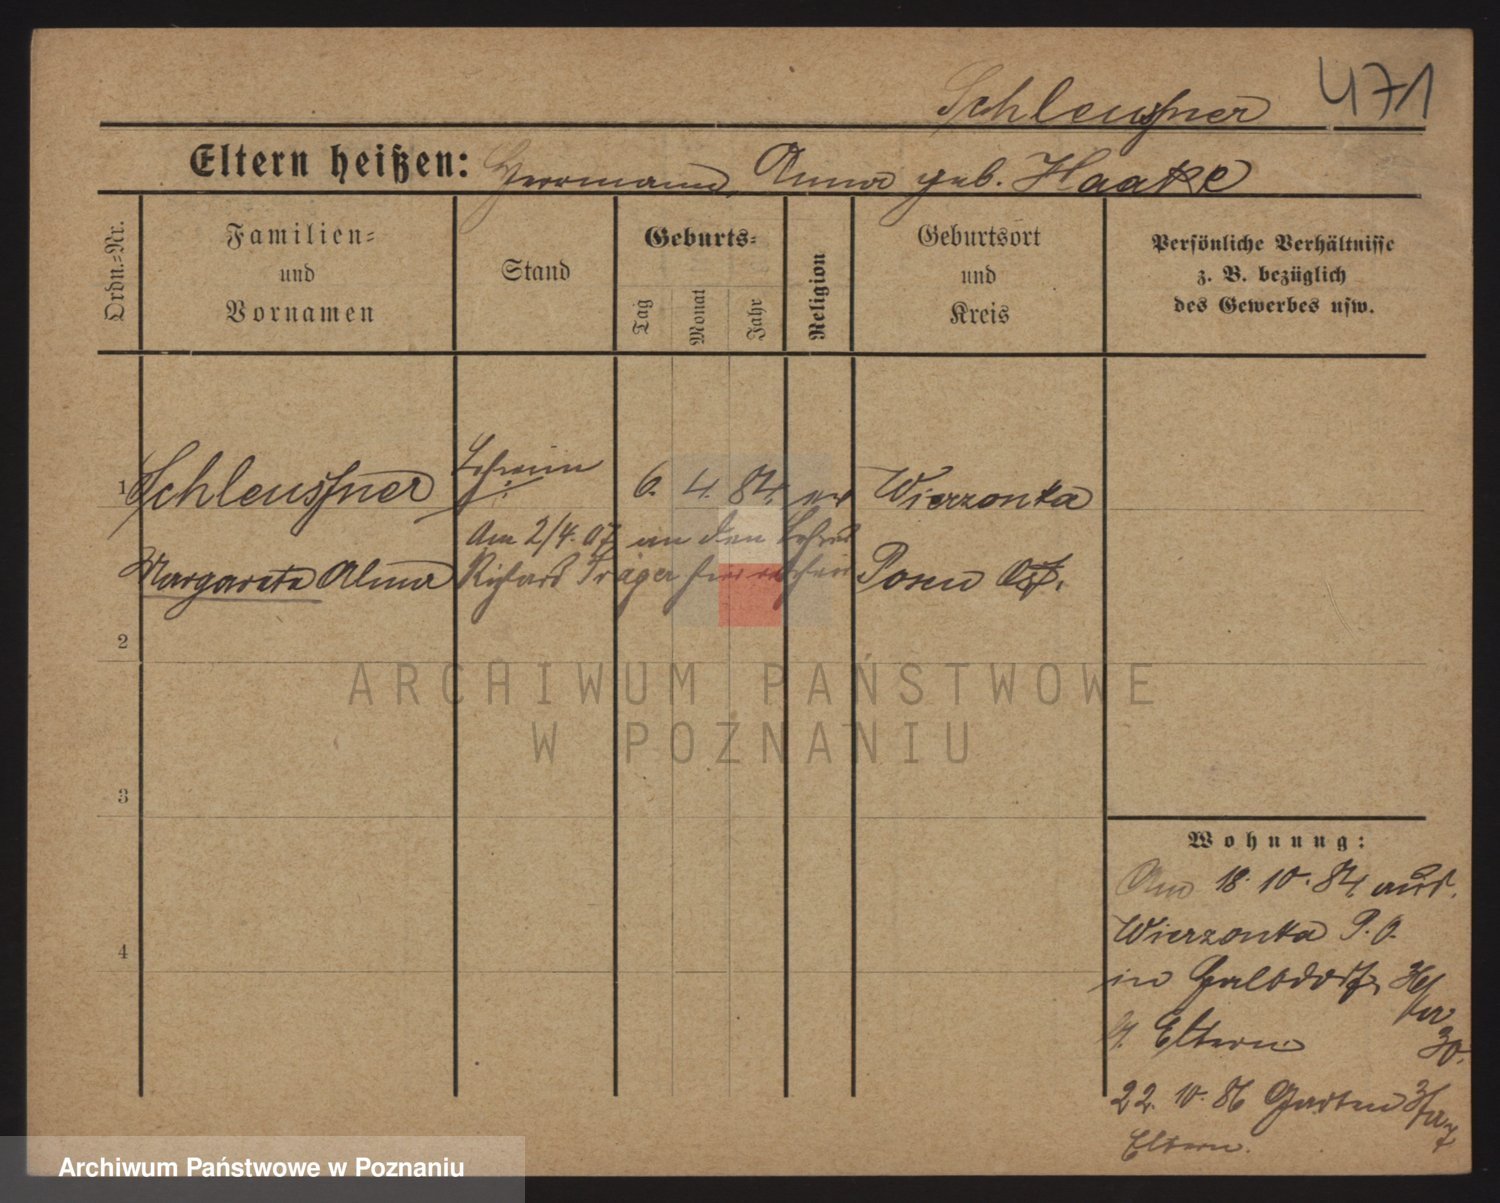 Schleusner 471
Eltern heißen: Herrmann, Anna geb. Haake
Ordn.-Nr.
Familien-
und
Vornamen
Stand
Geburts-
Tag
Monat
Jahr
Religion
Geburtsort
und
Kreis
Persönliche Verhältnisse
z. B. bezüglich
des Gewerbes usw.
1 Schleusner 6. 4. 84. ev Wierzonka
Am 2/4. 07 an den
Margarete Alma Richard Träger Posen Ost.
2
3
4
ARCHIWUM PAŃSTWOWE
W POZNANIU
Wohnung:
Am 18. 10. 84. aus
Wierzonka P. O.
in
Eltern 30.
22. 10. 86 Garten
Eltern.
Archiwum Państwowe w Poznaniu